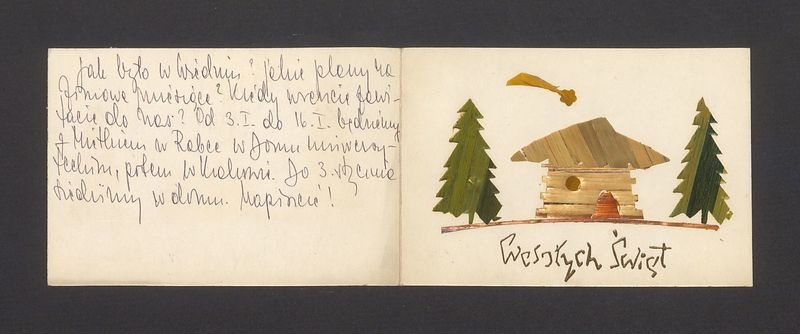 Jak było w Wiedniu? Jakie plany na
zimowe miesiące? Kiedy wreszcie zawi-
tacie do nas? Od 3.I. do 16.I. będziemy
z w Rabce w Domu Uniwersy-
teckim, potem w Krakowie. Do 3. stycznia
siedzimy w domu. Napiszcie!
Wesołych Świąt